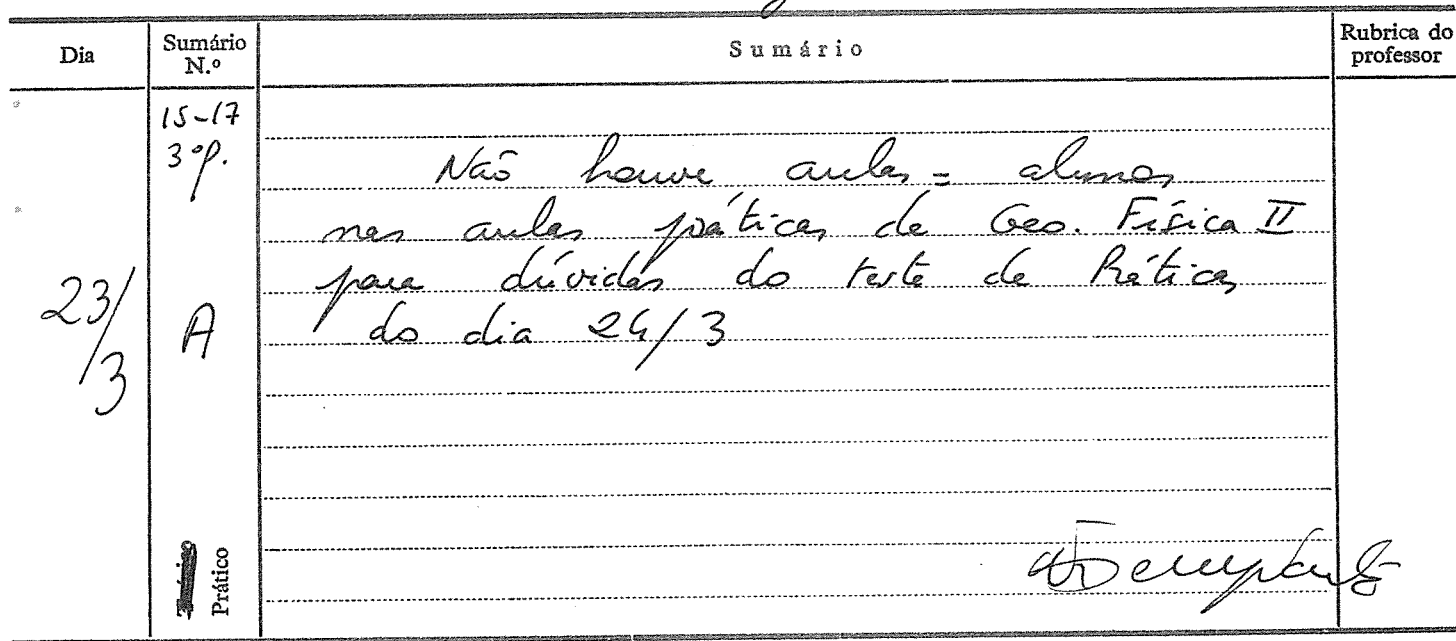 Dia
Sumário N.º
Sumário
Rubrica do professor
15-17
3ºp.
Não houve aulas = alunos
nas aulas práticas de Geo. Física II
para dúvidas do teste de Práticas
do dia 24/3
23/3
A
Prático